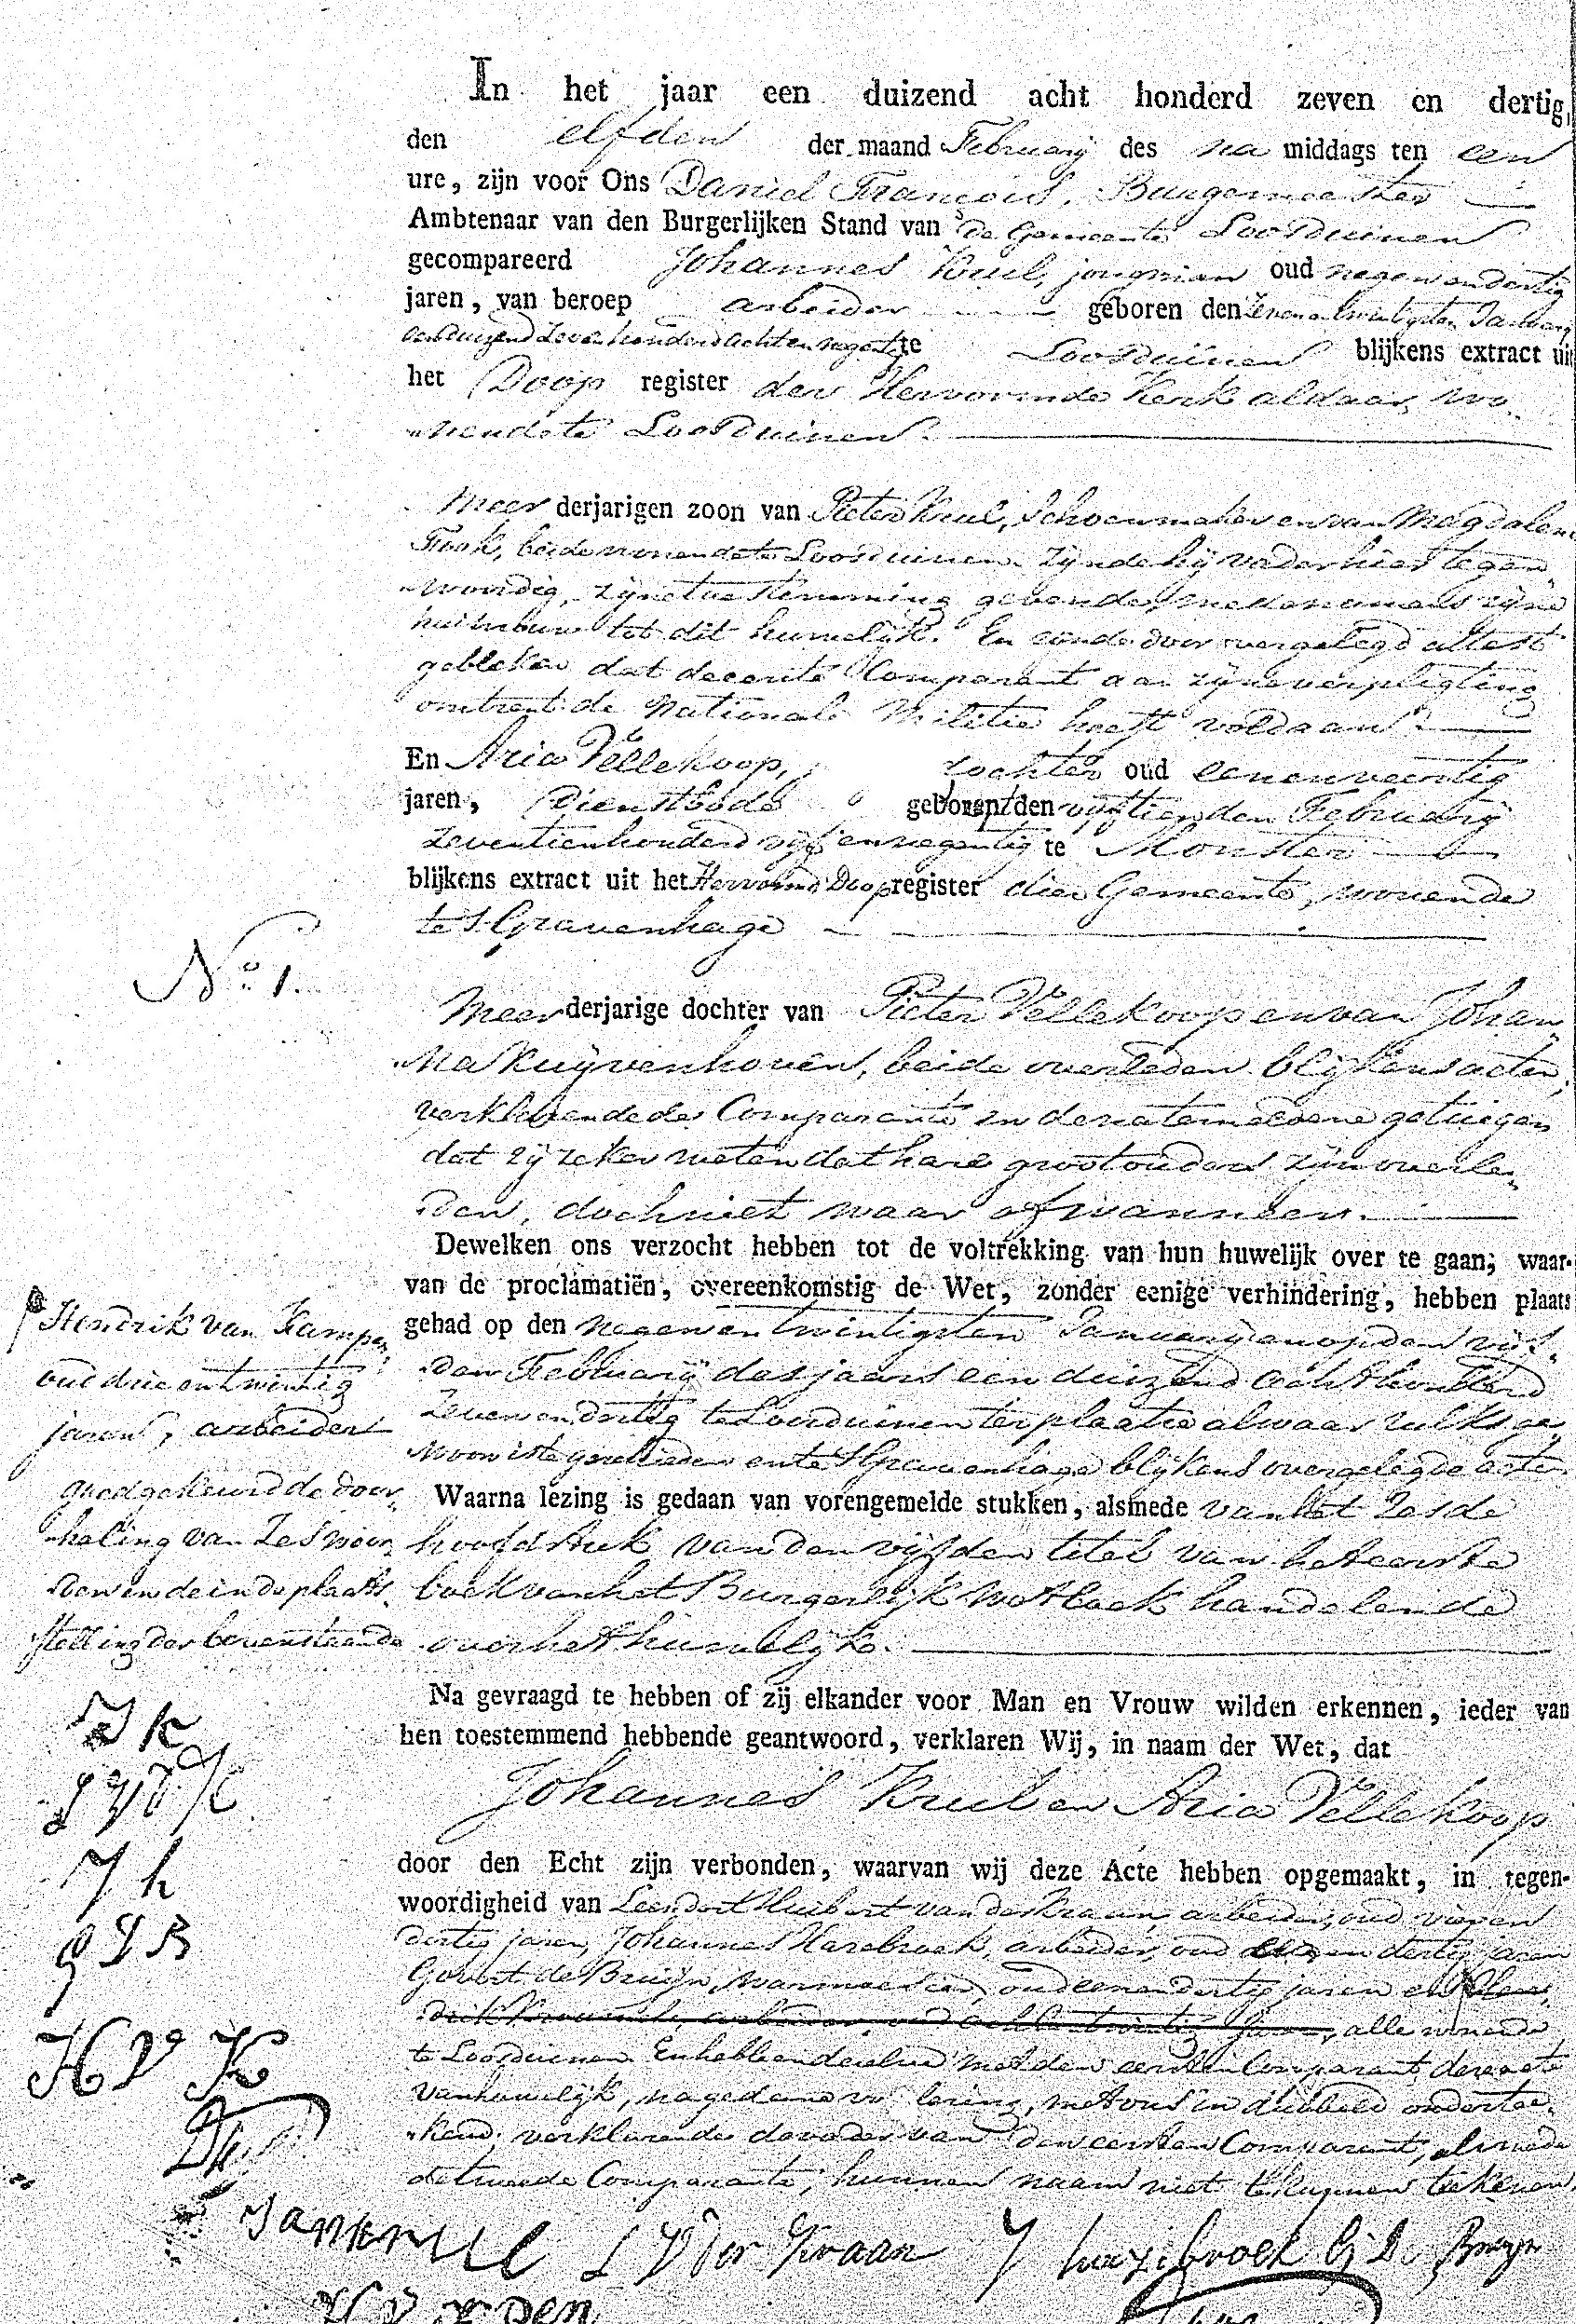 In het jaar een duizend acht honderd zeven en dertig,
den elfden der maand Februarij des na middags ten een
ure, zijn voor Ons Daniel François, Burgemeester
Ambtenaar van den Burgerlijken Stand van de Gemeente Loosduinen
gecompareerd Johannes Krul, jongman oud negen en dertig
jaren, van beroep arbeider geboren den Zeven en twintigsten January
een duizend Zeven honderd acht en negentig te Loosduinen blijkens extract uit
het Doop register der Hervormde Kerk aldaar, wo-
nende te Loosduinen.
Meer derjarigen zoon van Pieter Krul, Schoenmaker en van Magdalena
Fook, beide wonende te Loosduinen zijnde hij vader hier tegen
woordig, zijne toestemming gevende, mede namens zijne
huisvrouw tot dit huwelijk. En zijnde door overgelegd attest
gebleken dat de eerste Comparant aan zijne verpligting
omtrent de Nationale Militie heeft voldaan.
En Aria Vellekoop, dochter oud een en veertig
jaren, Dienstbode geboren den vijftienden Februarij
zeventienhonderd vijf en negentig te Monster
blijkens extract uit het Hervormd Doop register dier Gemeente, wonende
te s Gravenhage
No. 1.
Meer derjarige dochter van Pieter Vellekoop en van Johan
na Kuijvenhoven, beide overleden blijkens acten,
verklarende de Comparante en de natemeldene getuigen
dat zij zeker weten dat hare grootouders zijn overle-
den, doch niet waar of wanneer.
Dewelken ons verzocht hebben tot de voltrekking van hun huwelijk over te gaan; waar-
van de proclamatiën, overeenkomstig de Wet, zonder eenige verhindering, hebben plaats
gehad op den negen en twintigsten January en op den vijf-
den Februarij des jaars een duizend acht honderd
Zeven en dertig te Loosduinen ter plaatse alwaar zulks ge
woon is te geschieden en te s Gravenhage blijkens overgelegde acten
Waarna lezing is gedaan van vorengemelde stukken, alsmede van het Zesde
hoofdstuk van den vijfden titel van het eerste
boek van het Burgerlijk Wetboek handelende
over het huwelijk.
Hendrik van Kampen,
oud drie en twintig
jaren, arbeider
goedgekeurd de door-
haling van Zes woor-
den en de in de plaats
stelling der bovenstaande
J K
L V D K
J h
G D B
H V K
Na gevraagd te hebben of zij elkander voor Man en Vrouw wilden erkennen, ieder van
hen toestemmend hebbende geantwoord, verklaren Wij, in naam der Wet, dat
Johannes Krul en Aria Vellekoop
door den Echt zijn verbonden, waarvan wij deze Acte hebben opgemaakt, in tegen-
woordigheid van Leendert Huibert van der Kraan, arbeider, oud vier en
dertig jaren, Johannes Hazebroek, arbeider, oud en dertig jaren
Govert de Bruijn, warmoesier, oud een en dertig jaren en Hen
drik arbeider, oud acht en twintig jaren, alle wonende
te Loosduinen. En hebben dezelve met den eersten Comparant deze acte
van huwelijk, na gedane voorlezing, met ons in dubbeld onderte-
kend, verklarende de vader van den eersten Comparant, alsmede
de tweede Comparante, hunnen naam niet te kunnen tekenen.
Jan Krul L V Der Kraan J hazebroek G De Bruyn